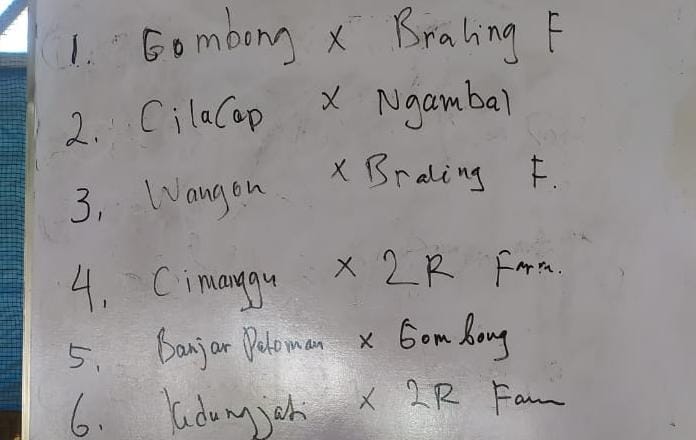 1. Gombong x Braling F
2. CilaCap x Ngambal
3. Wangon x Braling F.
4. Cimanggu x 2R Farm.
5. Banjar Patoman x Gombong
6. Kedungjati x 2R Farm